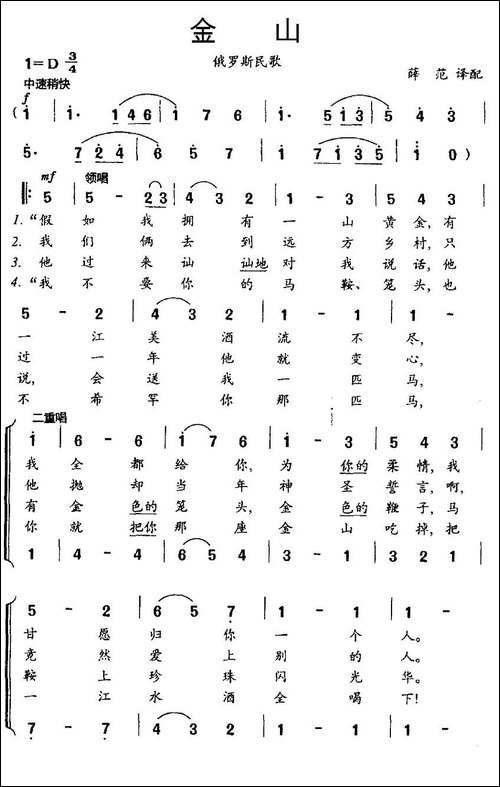 金 山
俄罗斯民歌
1=D 3/4
薛 范 译配
中速稍快
f
( 1̇ | 1̇· 1̇ 4̇ 6 | 1̇ 7 6 | 1̇ - 1̇ | 5 1̇ 3̇ | 5̇ 4̇ 3̇ |
5̇· 7 2̇ 4̇ | 6 5 7 | 1̇ 7 1̇ 3̇ 5̇ | 1̇ 0 )
mf 领唱
5 | 5 - 2 3 | 4 3 2 | 1 - 3 | 5 4 3 |
1. “假 如 我 拥 有 一 山 黄 金, 有
2. 我 们 俩 去 到 远 方 乡 村, 只
3. 他 过 来 讪 讪地 对 我 说 话, 他
4. “我 不 要 你 的 马 鞍、 笼 头, 也
5 - 2 | 4 3 2 | 1 - 1 | 1 - 1 |
一 江 美 酒 流 不 尽,
过 一 年 他 就 变 心,
说, 会 送 我 一 匹 马,
不 希 罕 你 那 匹 马,
二重唱
1̇ | 6 - 6 | 1̇ 7 6 | 5 - 3 | 5 4 3 |
我 全 都 给 你, 为 你的 柔 情, 我
他 抛 却 当 年 神 圣 誓 言 啊,
有 金 色的 笼 头, 金 色的 鞭 子, 马
你 就 把你 那 座 金 山 吃 掉, 把
1 | 4 - 4 | 6 5 4 | 3 - 1 | 3 2 1 |
5 - 2 | 6 5 7̣ | 1 - 1 | 1 - |
甘 愿 归 你 一 个 人。
竟 然 爱 上 别 的 人。
鞍 上 珍 珠 闪 光 华。
一 江 水 酒 全 喝 下!
7̣ - 7̣ | 4 3 2 | 1 - 1 | 1 - |